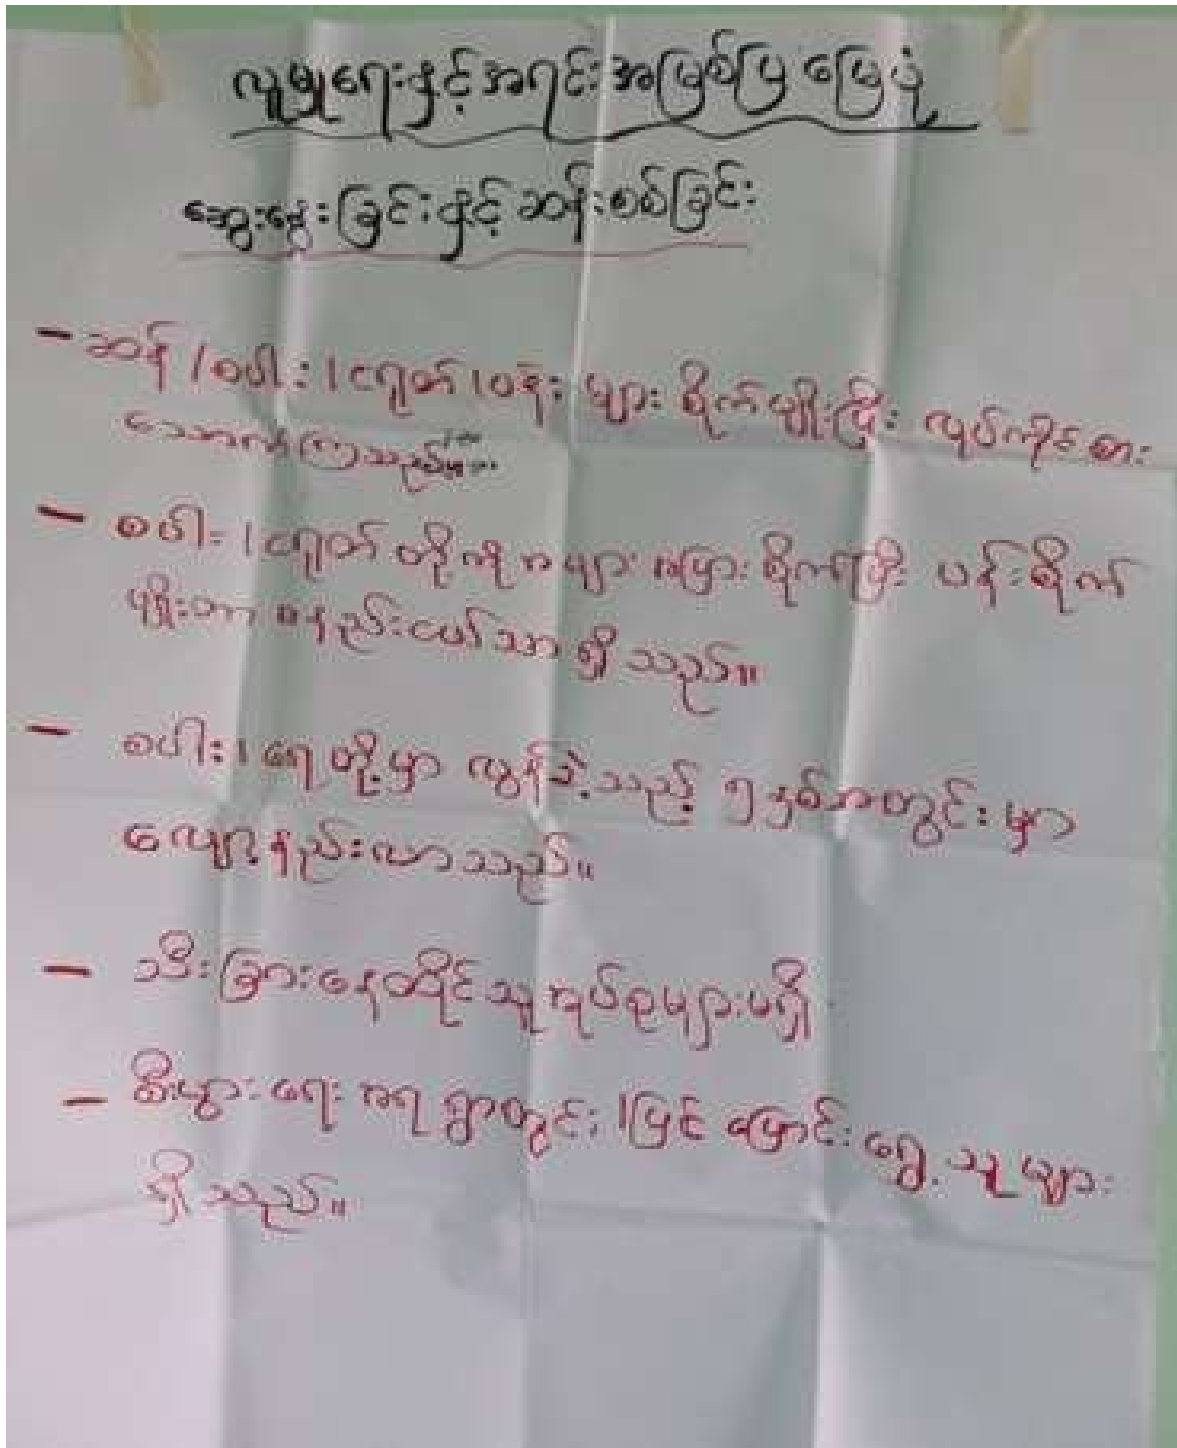 လူမှုရေးနှင့်အရင်းအမြစ်ပြ မြေပုံ
ဆွေးနွေးခြင်းနှင့်ဆန်းစစ်ခြင်း
- ဆန် / စပါး / ငရုတ် / ပန်း များ စိုက်ပျိုးပြီး လုပ်ကိုင်စား
သောက်ကြသည်။
- စပါး / ငရုတ် တို့ကို အများအပြား စိုက်ပြီး ပန်းစိုက်
ပျိုးတာ အနည်းငယ်သာ ရှိသည်။
- စပါး / ရေ တို့မှာ လွန်ခဲ့သည့် ၅နှစ်အတွင်းမှာ
လျော့နည်းလာသည်။
- သီးခြားနေထိုင်သူအုပ်စုများမရှိ
- စီးပွားရေး အရ ရွာတွင်း / ပြင် ပြောင်းရွှေ့သူများ
ရှိသည်။